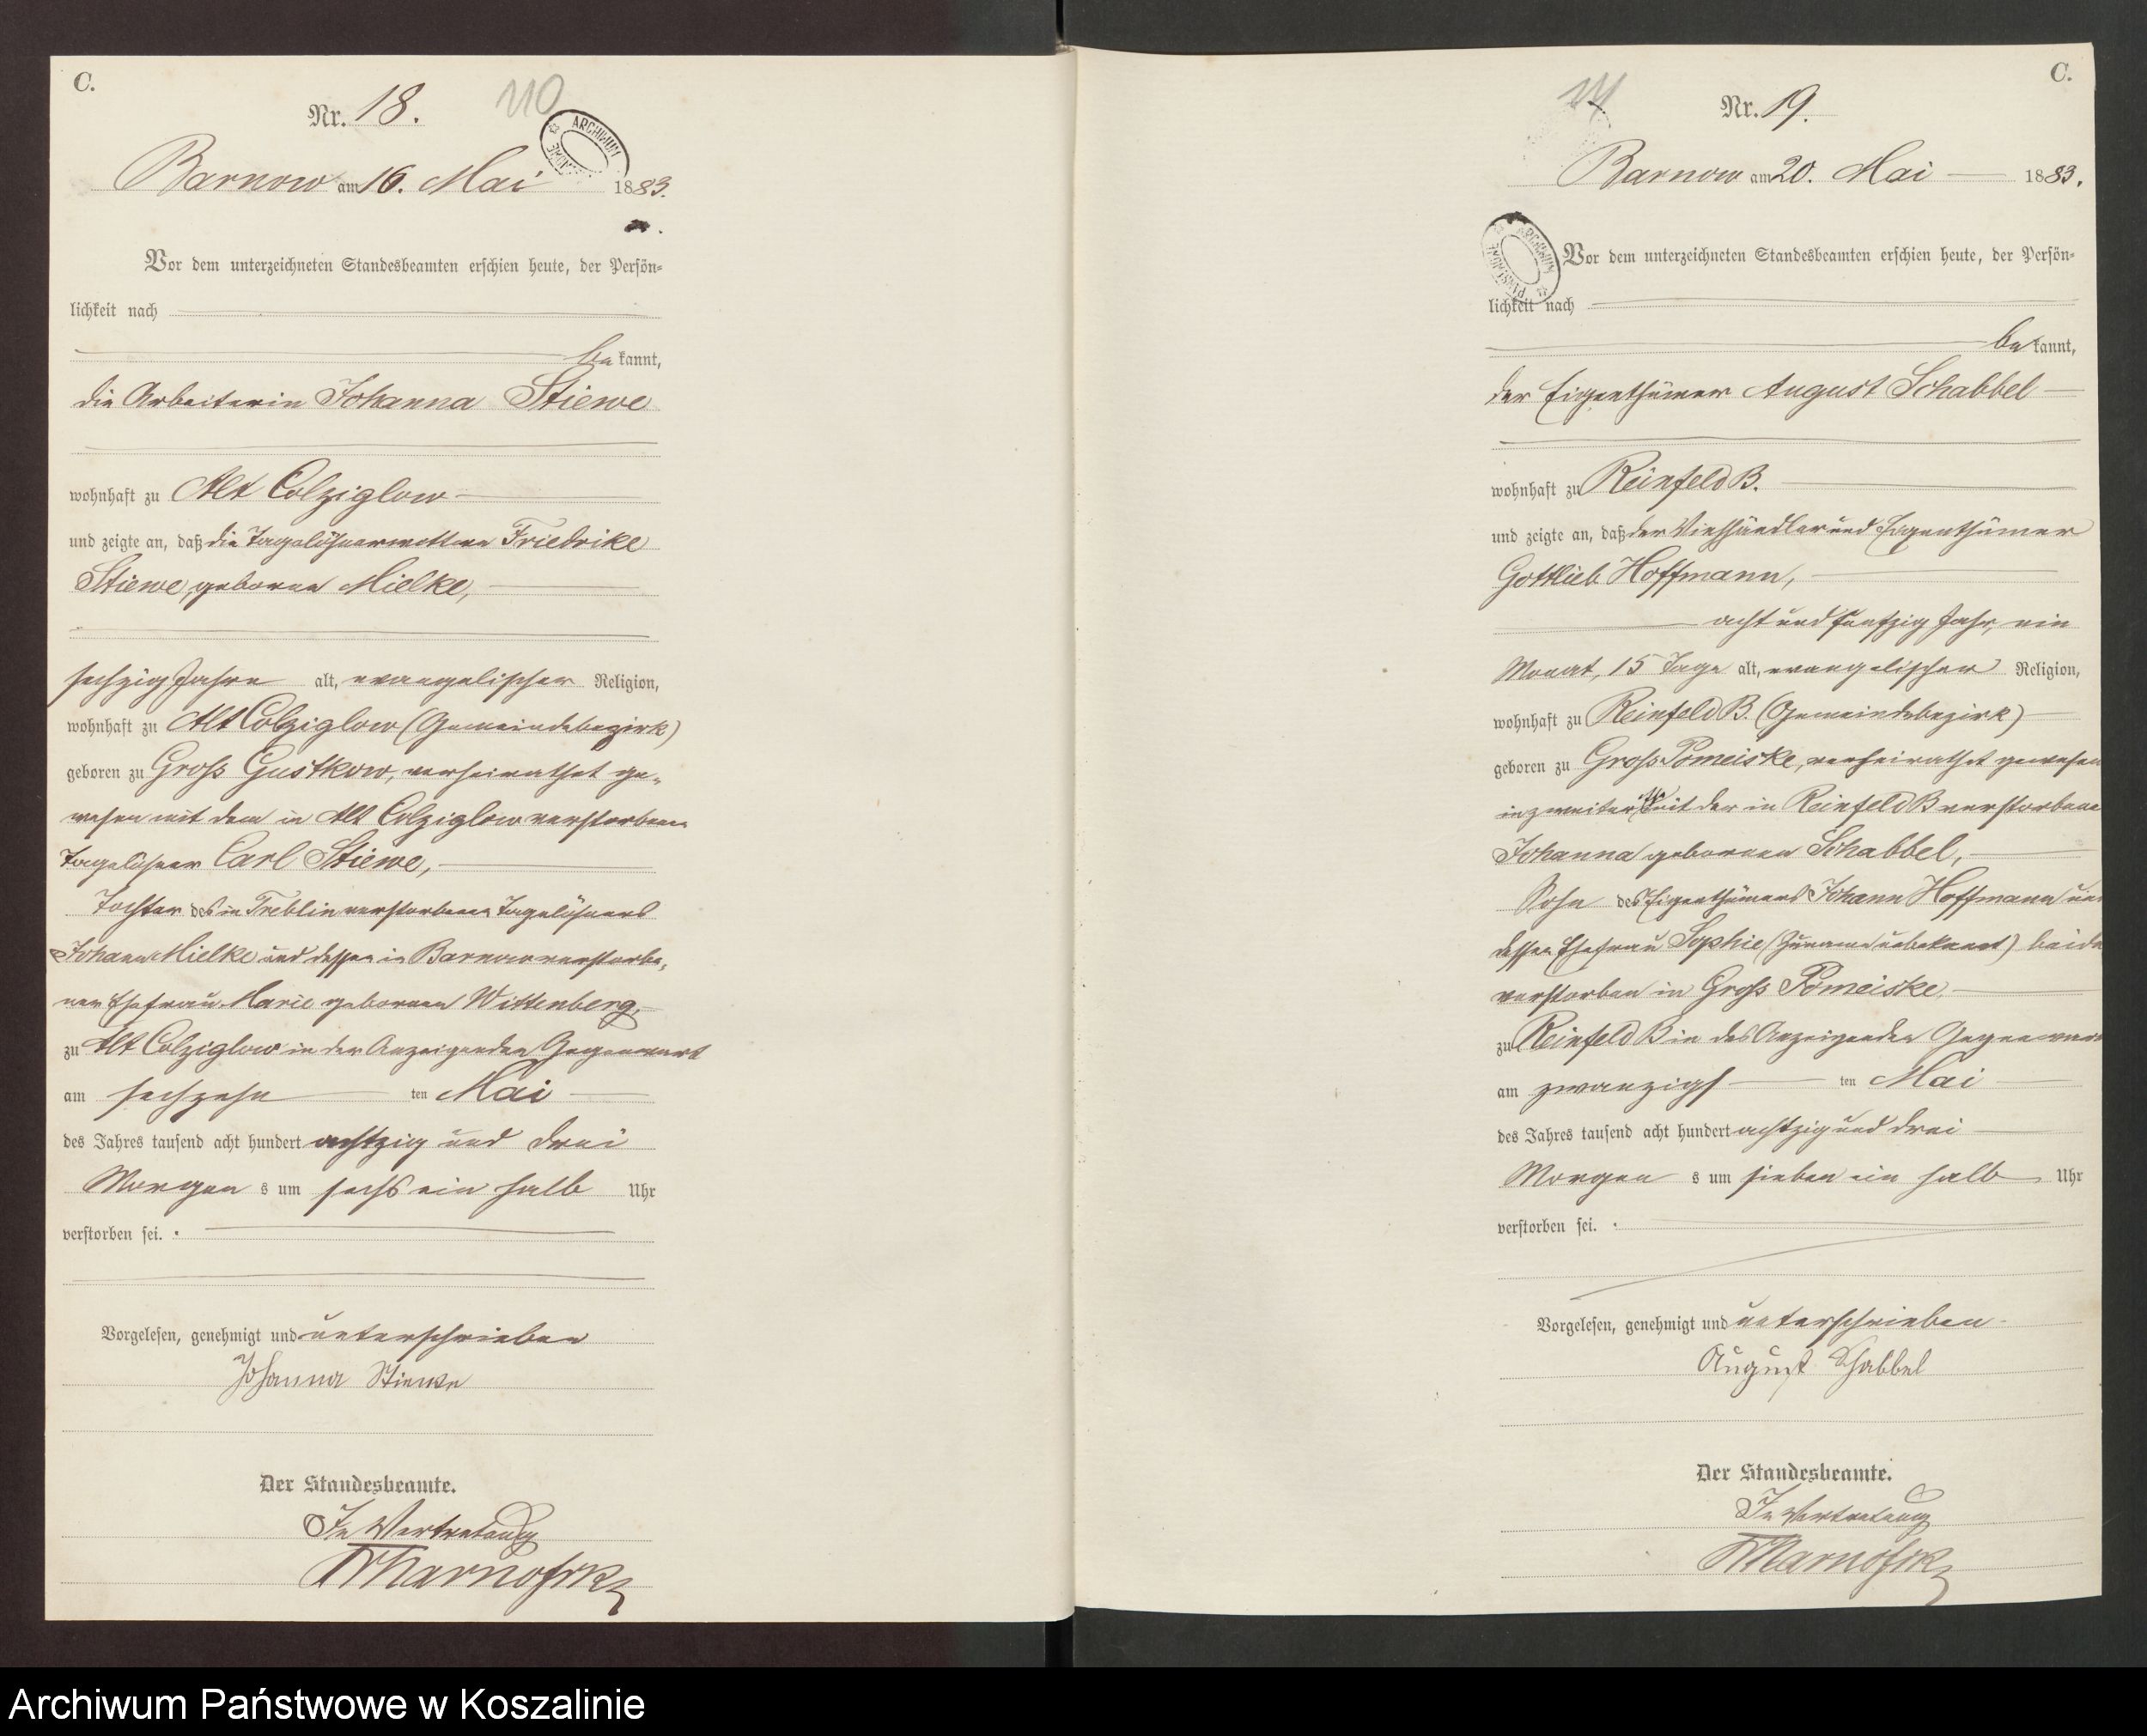 C.
Nr. 18.
110
ARCHIWUM
Barnow am 16. Mai 1883.
Vor dem unterzeichneten Standesbeamten erschien heute, der Persön-
lichkeit nach
be kannt,
die Arbeiterin Johanna Stiewe
wohnhaft zu Alt Colziglow
und zeigte an, daß die Tagelöhnerwittwe Friedrike
Stiewe, geborne Mielke,
sechzig Jahre alt, evangelischer Religion,
wohnhaft zu Alt Colziglow (Gemeindebezirk)
geboren zu Groß Gustkow, verheirathet ge-
wesen mit dem in Alt Colziglow verstorbenen
Tagelöhner Carl Stiewe,
Tochter des in Treblin verstorbenen Tagelöhners
Johann Mielke und dessen in Barnow verstorbe-
nen Ehefrau Marie gebornen Wittenberg,
zu Alt Colziglow in der Anzeigenden Gegenwart
am sechzehn ten Mai
des Jahres tausend acht hundert achtzig und drei
Morgen s um sechs ein halb Uhr
verstorben sei.
Vorgelesen, genehmigt und unterschrieben
Johanna Stiewe
Der Standesbeamte.
In Vertretung
C.
Nr. 19.
Barnow am 20. Mai 1883.
ARCHIWUM
Vor dem unterzeichneten Standesbeamten erschien heute, der Persön-
lichkeit nach
be kannt,
der Eigenthümer August Schabbel
wohnhaft zu Reinfeld B.
und zeigte an, daß der Viehhändler und Eigenthümer
Gottlieb Hoffmann,
acht und funfzig Jahr, ein
Monat, 15 Tage alt, evangelischer Religion,
wohnhaft zu Reinfeld B. (Gemeindebezirk)
geboren zu Groß Pomeiske, verheirathet gewesen
in zweiter Ehe mit der in Reinfeld B verstorbene
Johanna gebornen Schabbel,
Sohn des Eigenthümers Johann Hoffmann und
dessen Ehefrau Sophie (Zuname unbekannt) beide
verstorben in Groß Pomeiske,
zu Reinfeld B in des Anzeigenden Gegenwart
am zwanzigs ten Mai
des Jahres tausend acht hundert achtzig und drei
Morgen s um sieben ein halb Uhr
verstorben sei.
Vorgelesen, genehmigt und unterschrieben
August Schabbel
Der Standesbeamte.
In Vertretung
Archiwum Państwowe w Koszalinie